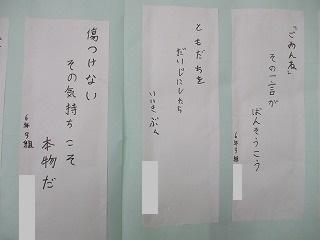 「ごめんね」
その一言が
ばんそうこう
6年9組
ともだちを
だいじにしたら
いいきぶん
傷つけない
その気持ちこそ
本物だ
6年9組